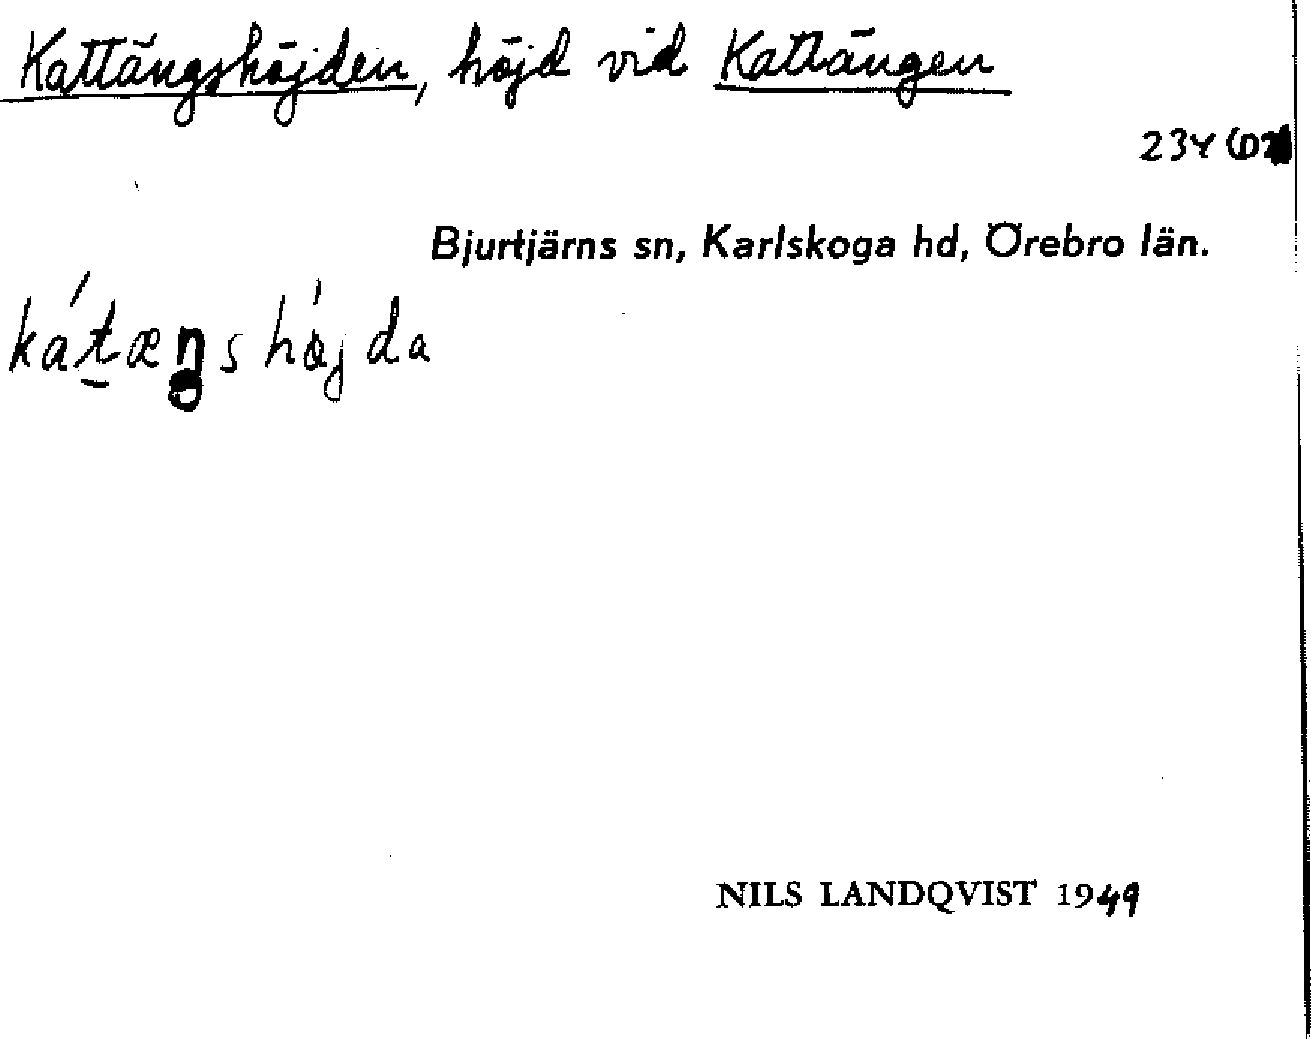 Kattängshöjden, höjd vid Kattängen
Bjurtjärns sn, Karlskoga hd, Örebro län.
kátæŋshöjda
NILS LANDQVIST 1949